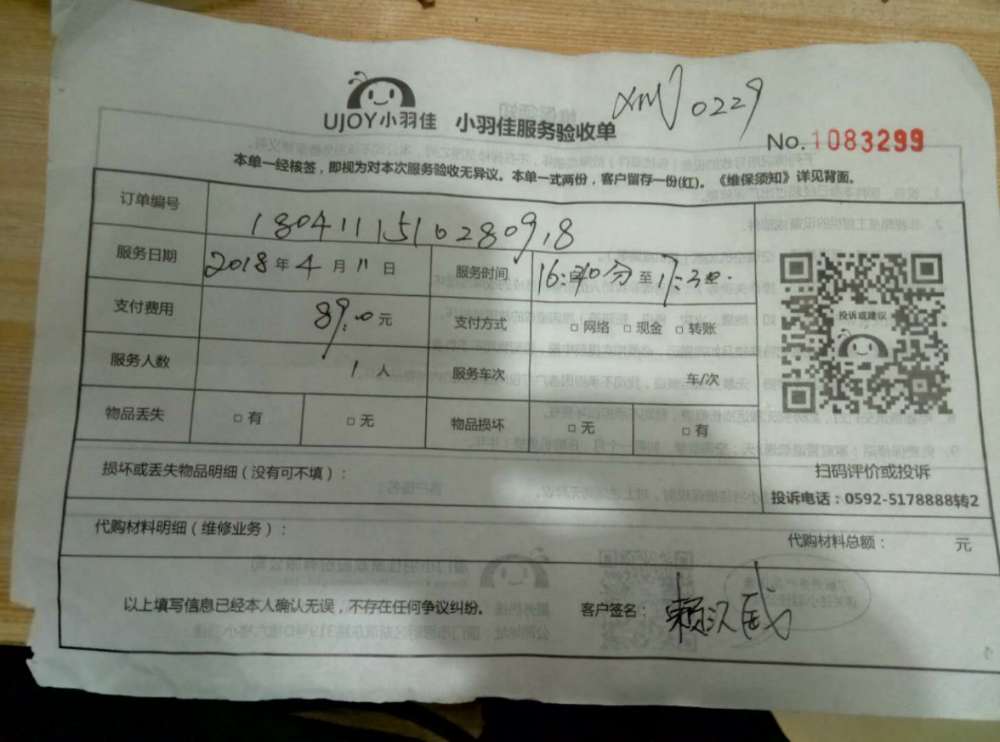 XMJ 0229
UJOY小羽佳 小羽佳服务验收单
No.1083299
本单一经核签，即视为对本次服务验收无异议。本单一式两份，客户留存一份(红)。《维保须知》详见背面。
订单编号 18041115102809,8
服务日期 2018年4月11日 服务时间 16:40分至17:30.
支付费用 89.0元 支付方式 □网络 □现金 □转账
投诉或建议
服务人数 1人 服务车次 车/次
物品丢失 □有 □无 物品损坏 □无 □有
损坏或丢失物品明细（没有可不填）：
扫码评价或投诉
投诉电话：0592-5178888转2
代购材料明细（维修业务）：
代购材料总额： 元
以上填写信息已经本人确认无误，不存在任何争议纠纷。 客户签名：赖汉